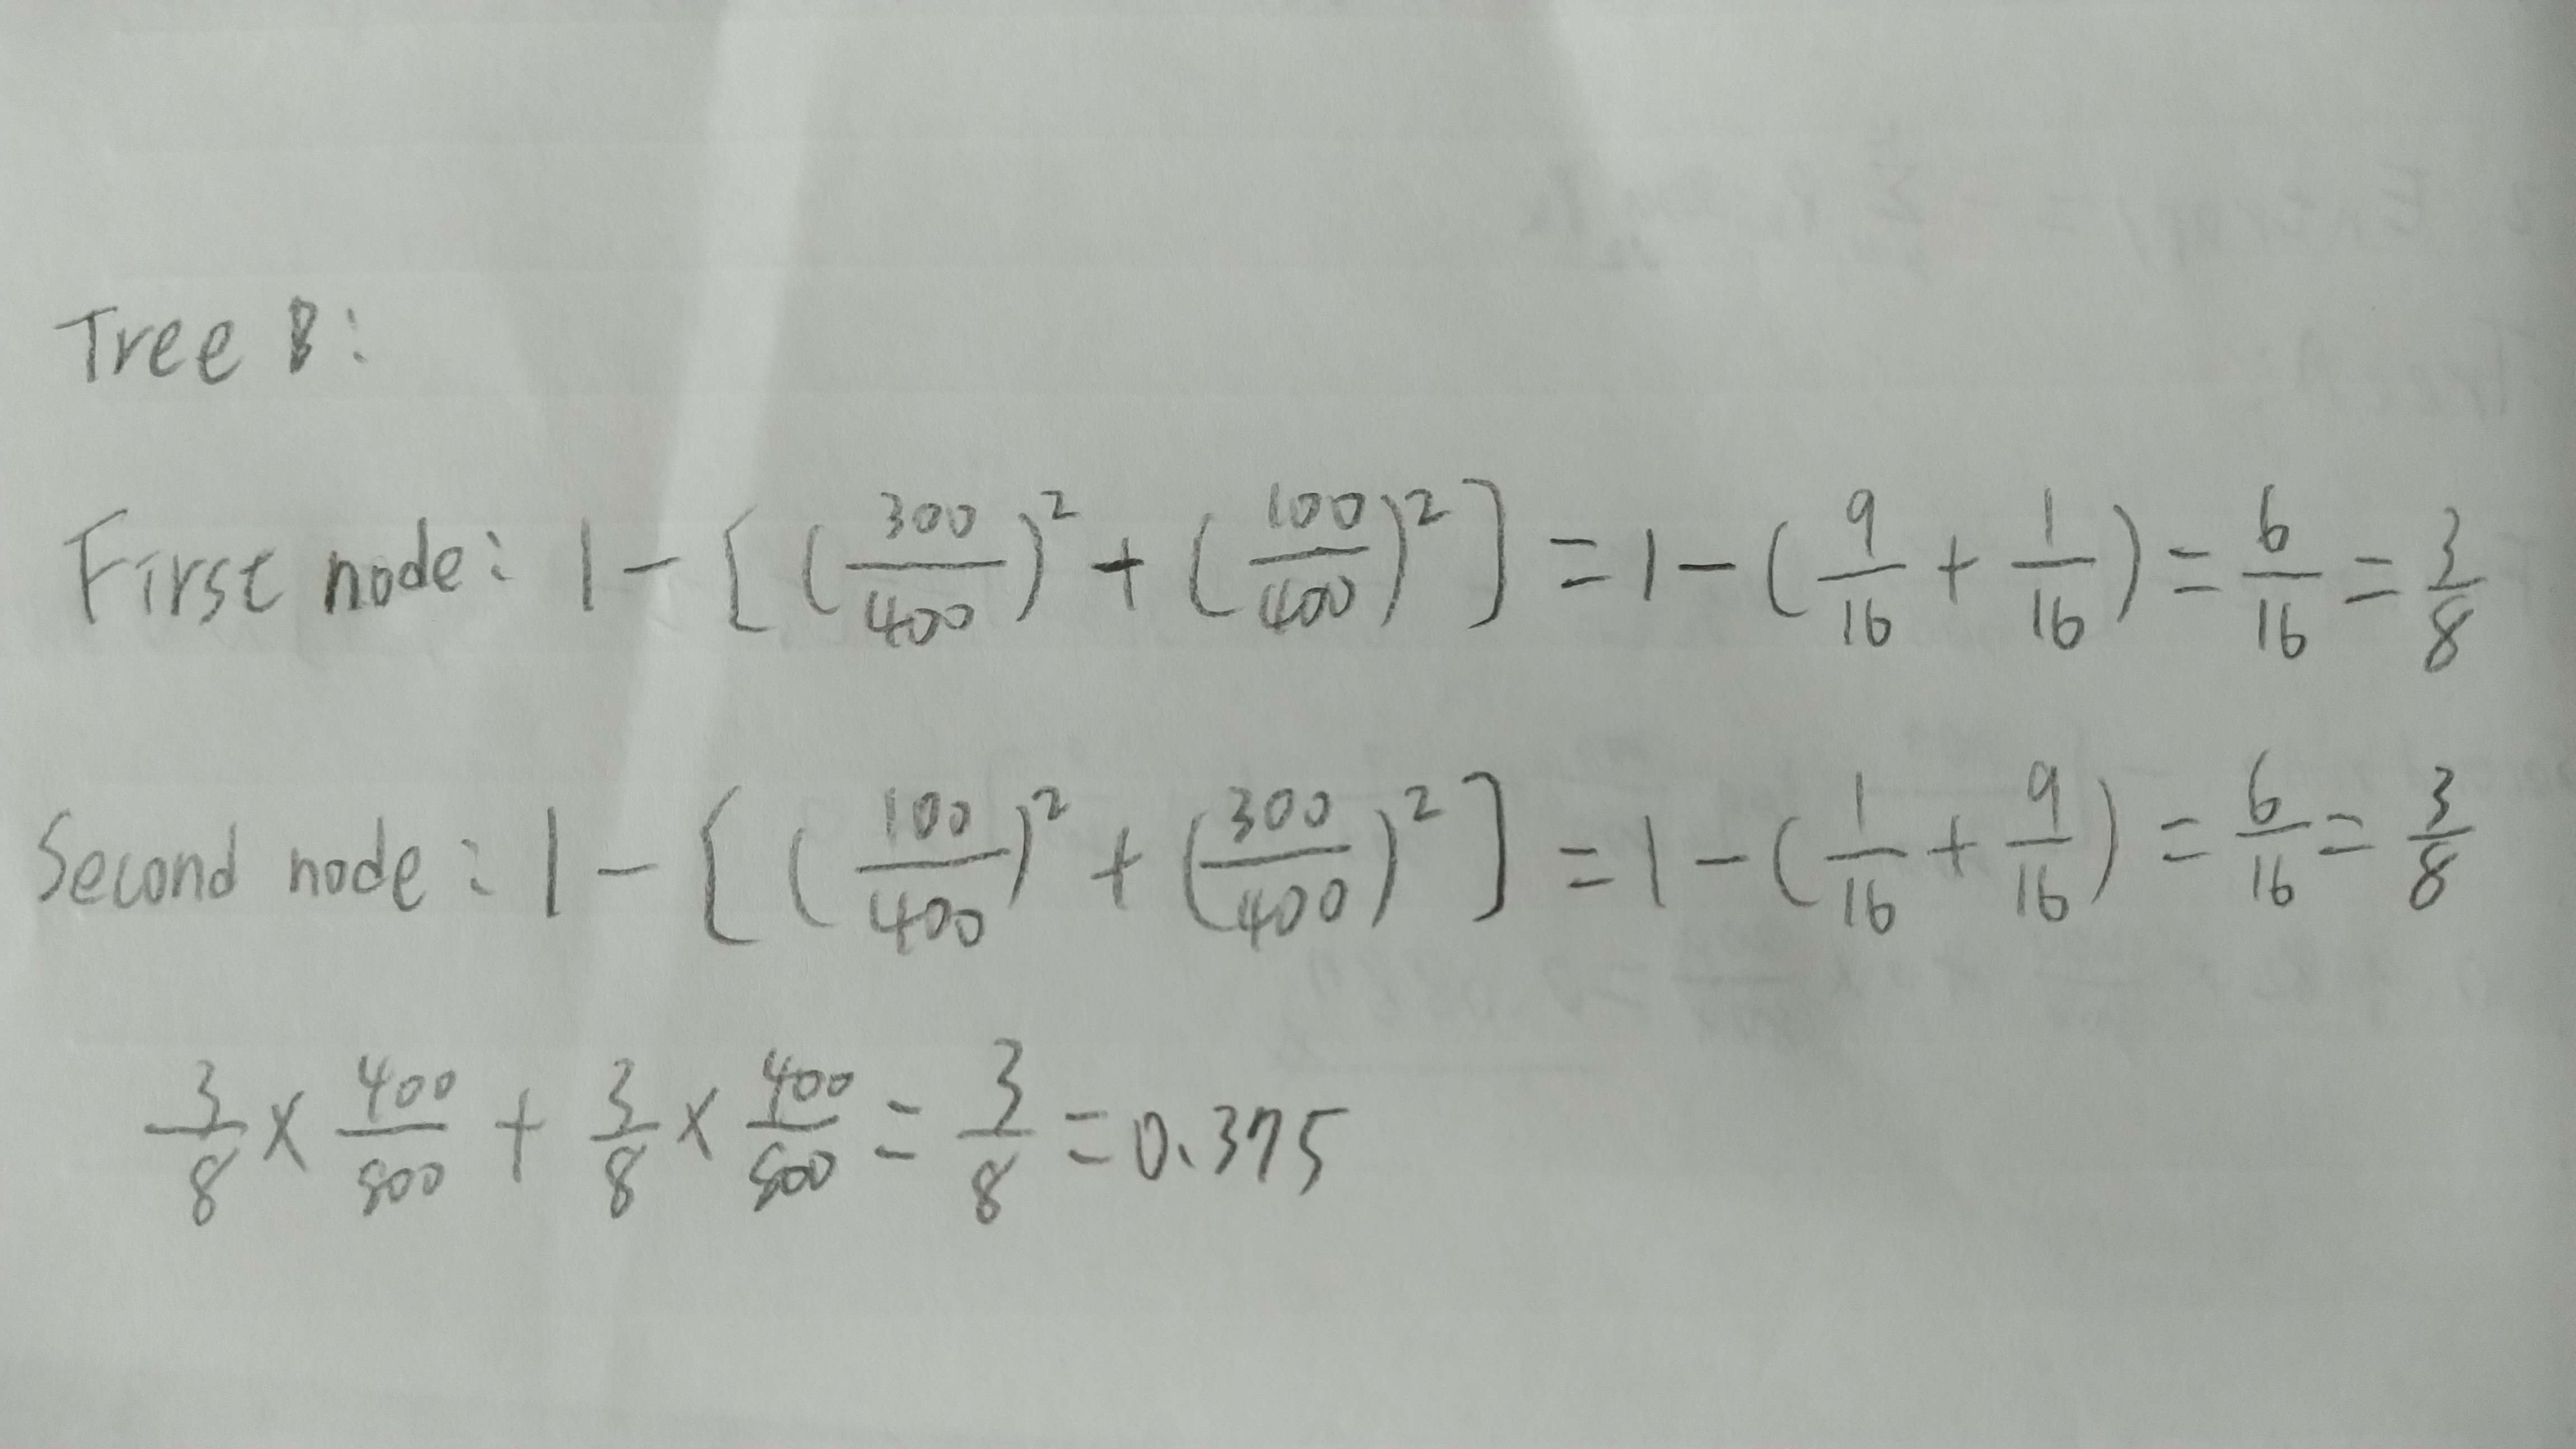 Tree B:
First node: 1 - [ (300/400)² + (100/400)² ] = 1 - (9/16 + 1/16) = 6/16 = 3/8
Second node: 1 - [ (100/400)² + (300/400)² ] = 1 - (1/16 + 9/16) = 6/16 = 3/8
3/8 × 400/800 + 3/8 × 400/800 = 3/8 = 0.375